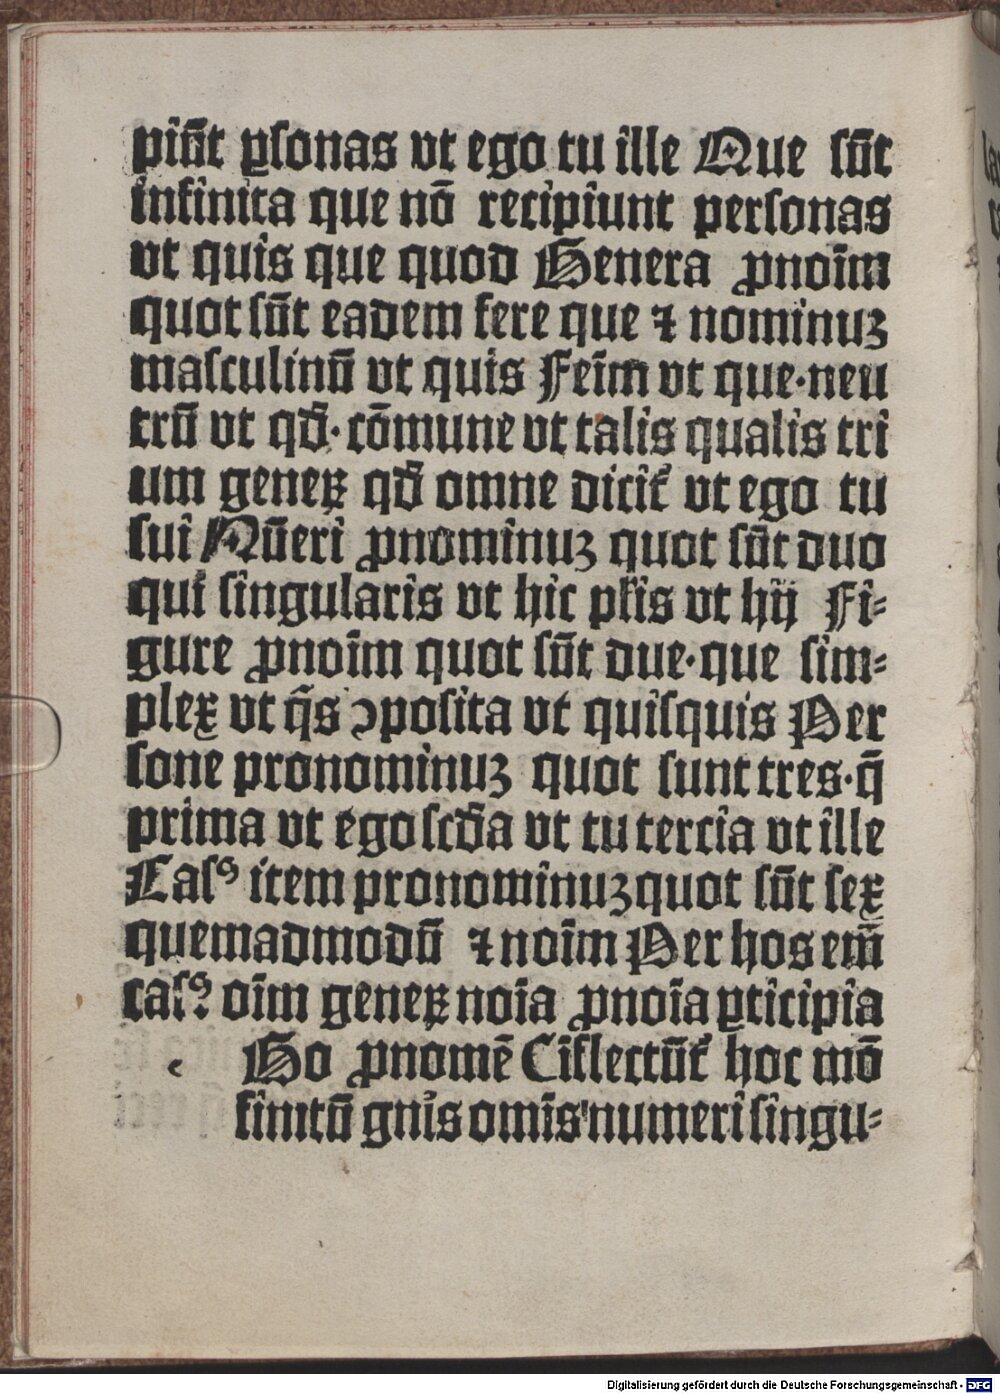 piūt ꝑsonas vt ego tu ille Que sūt
infinita que nō recipiunt personas
vt quis que quod Genera ꝓnoīm
quot sūt eadem fere que ⁊ nominuꝫ
masculinū vt quis Feīm vt que·neu
trū vt qđ·cōmune vt talis qualis tri
um geneꝝ qđ omne dicit̄ vt ego tu
sui Nūeri ꝓnominuꝫ quot sūt duo
qui singularis vt hic pl̄is vt hij Fi⸗
gure ꝓnoīm quot sūt due·que sim⸗
plex vt q̄s ꝯposita vt quisquis Per
sone pronominuꝫ quot sunt tres·q̄
prima vt ego scđa vt tu tercia vt ille
Casꝰ item pronominuꝫ quot sūt sex
quemadmodū ⁊ noīm Per hos em̄
casꝰ oīm geneꝝ noīa ꝓnoīa ꝑticipia
Go ꝓnomē Ciflectūt̄ hoc mō
finitū gn̄is omīs numeri singu⸗
Digitalisierung gefördert durch die Deutsche Forschungsgemeinschaft - DFG